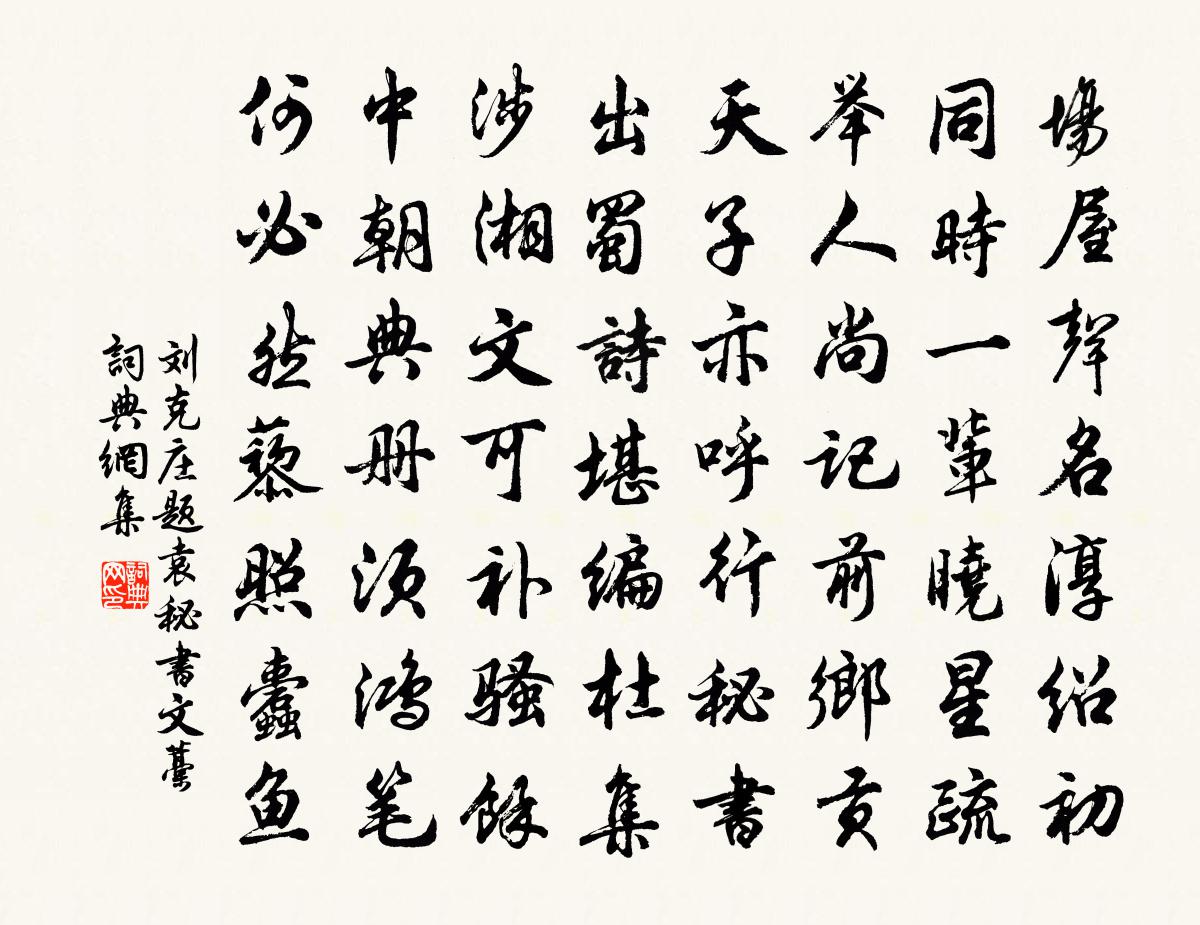 場屋聲名淳紹初
同時一輩曉星疏
举人尚记前鄉贡
天子亦呼行秘書
出蜀詩堪编杜集
涉湘文可补骚餘
中朝典册须鸿笔
何必然藜照蠹鱼
刘克庄题袁秘書文藁
詞典網集
詞典网印